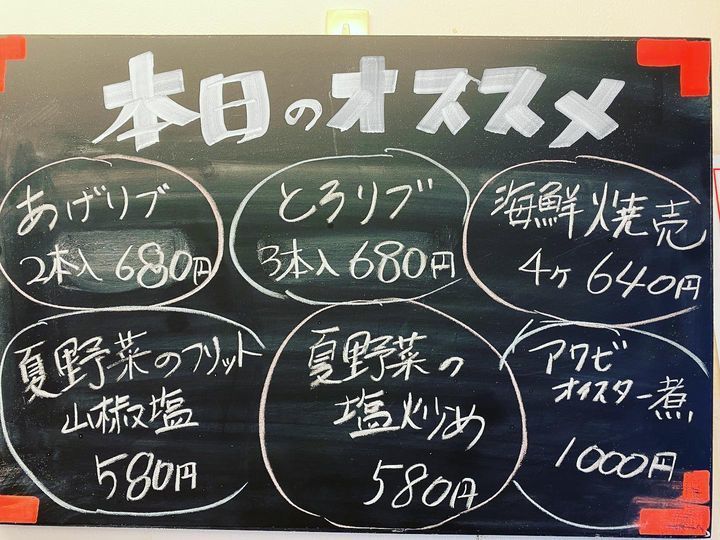 本日のオススメ
あげリブ
2本入 680円
とろリブ
3本入 680円
海鮮焼売
4ヶ 640円
夏野菜のフリット
山椒塩
580円
夏野菜の
塩炒め
580円
アワビ
オイスター煮
1000円